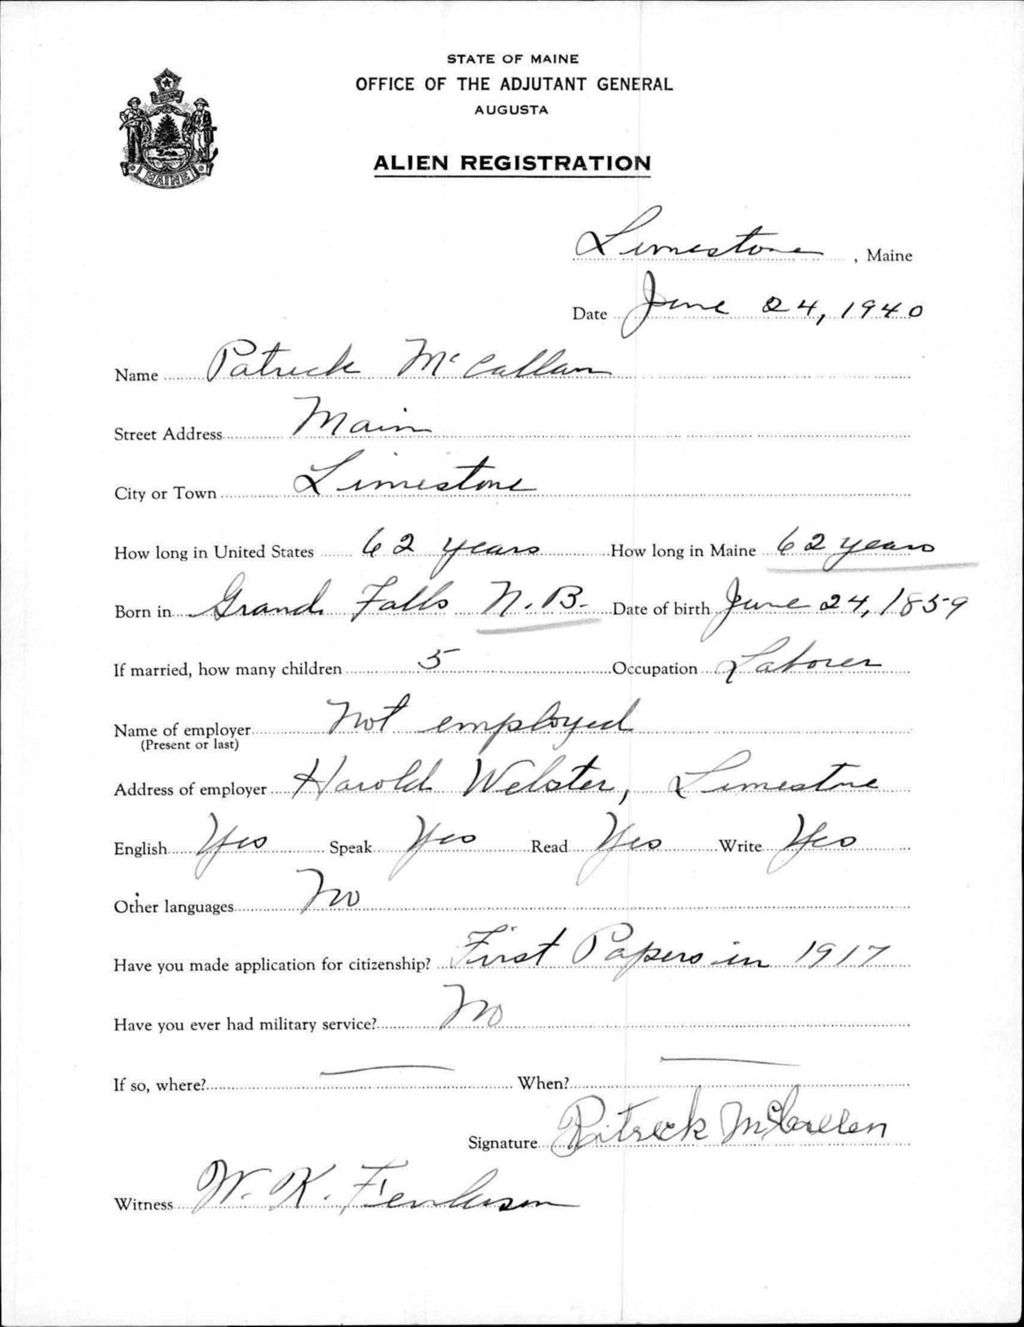 STATE OF MAINE
OFFICE OF THE ADJUTANT GENERAL
AUGUSTA
ALIEN REGISTRATION
MAINE
Limestone, Maine
Date June 24, 1940
Name Patrick McCallan
Street Address Main
City or Town Limestone
How long in United States 62 years How long in Maine 62 years
Born in Grand Falls N.B. Date of birth June 24, 1859
If married, how many children 5 Occupation Laborer
Name of employer Not employed
(Present or last)
Address of employer Harold Webster, Limestone
English Yes Speak Yes Read Yes Write Yes
Other languages No
Have you made application for citizenship? First Papers in 1917
Have you ever had military service? No
If so, where? — When? —
Signature Patrick McCallen
Witness W. K.